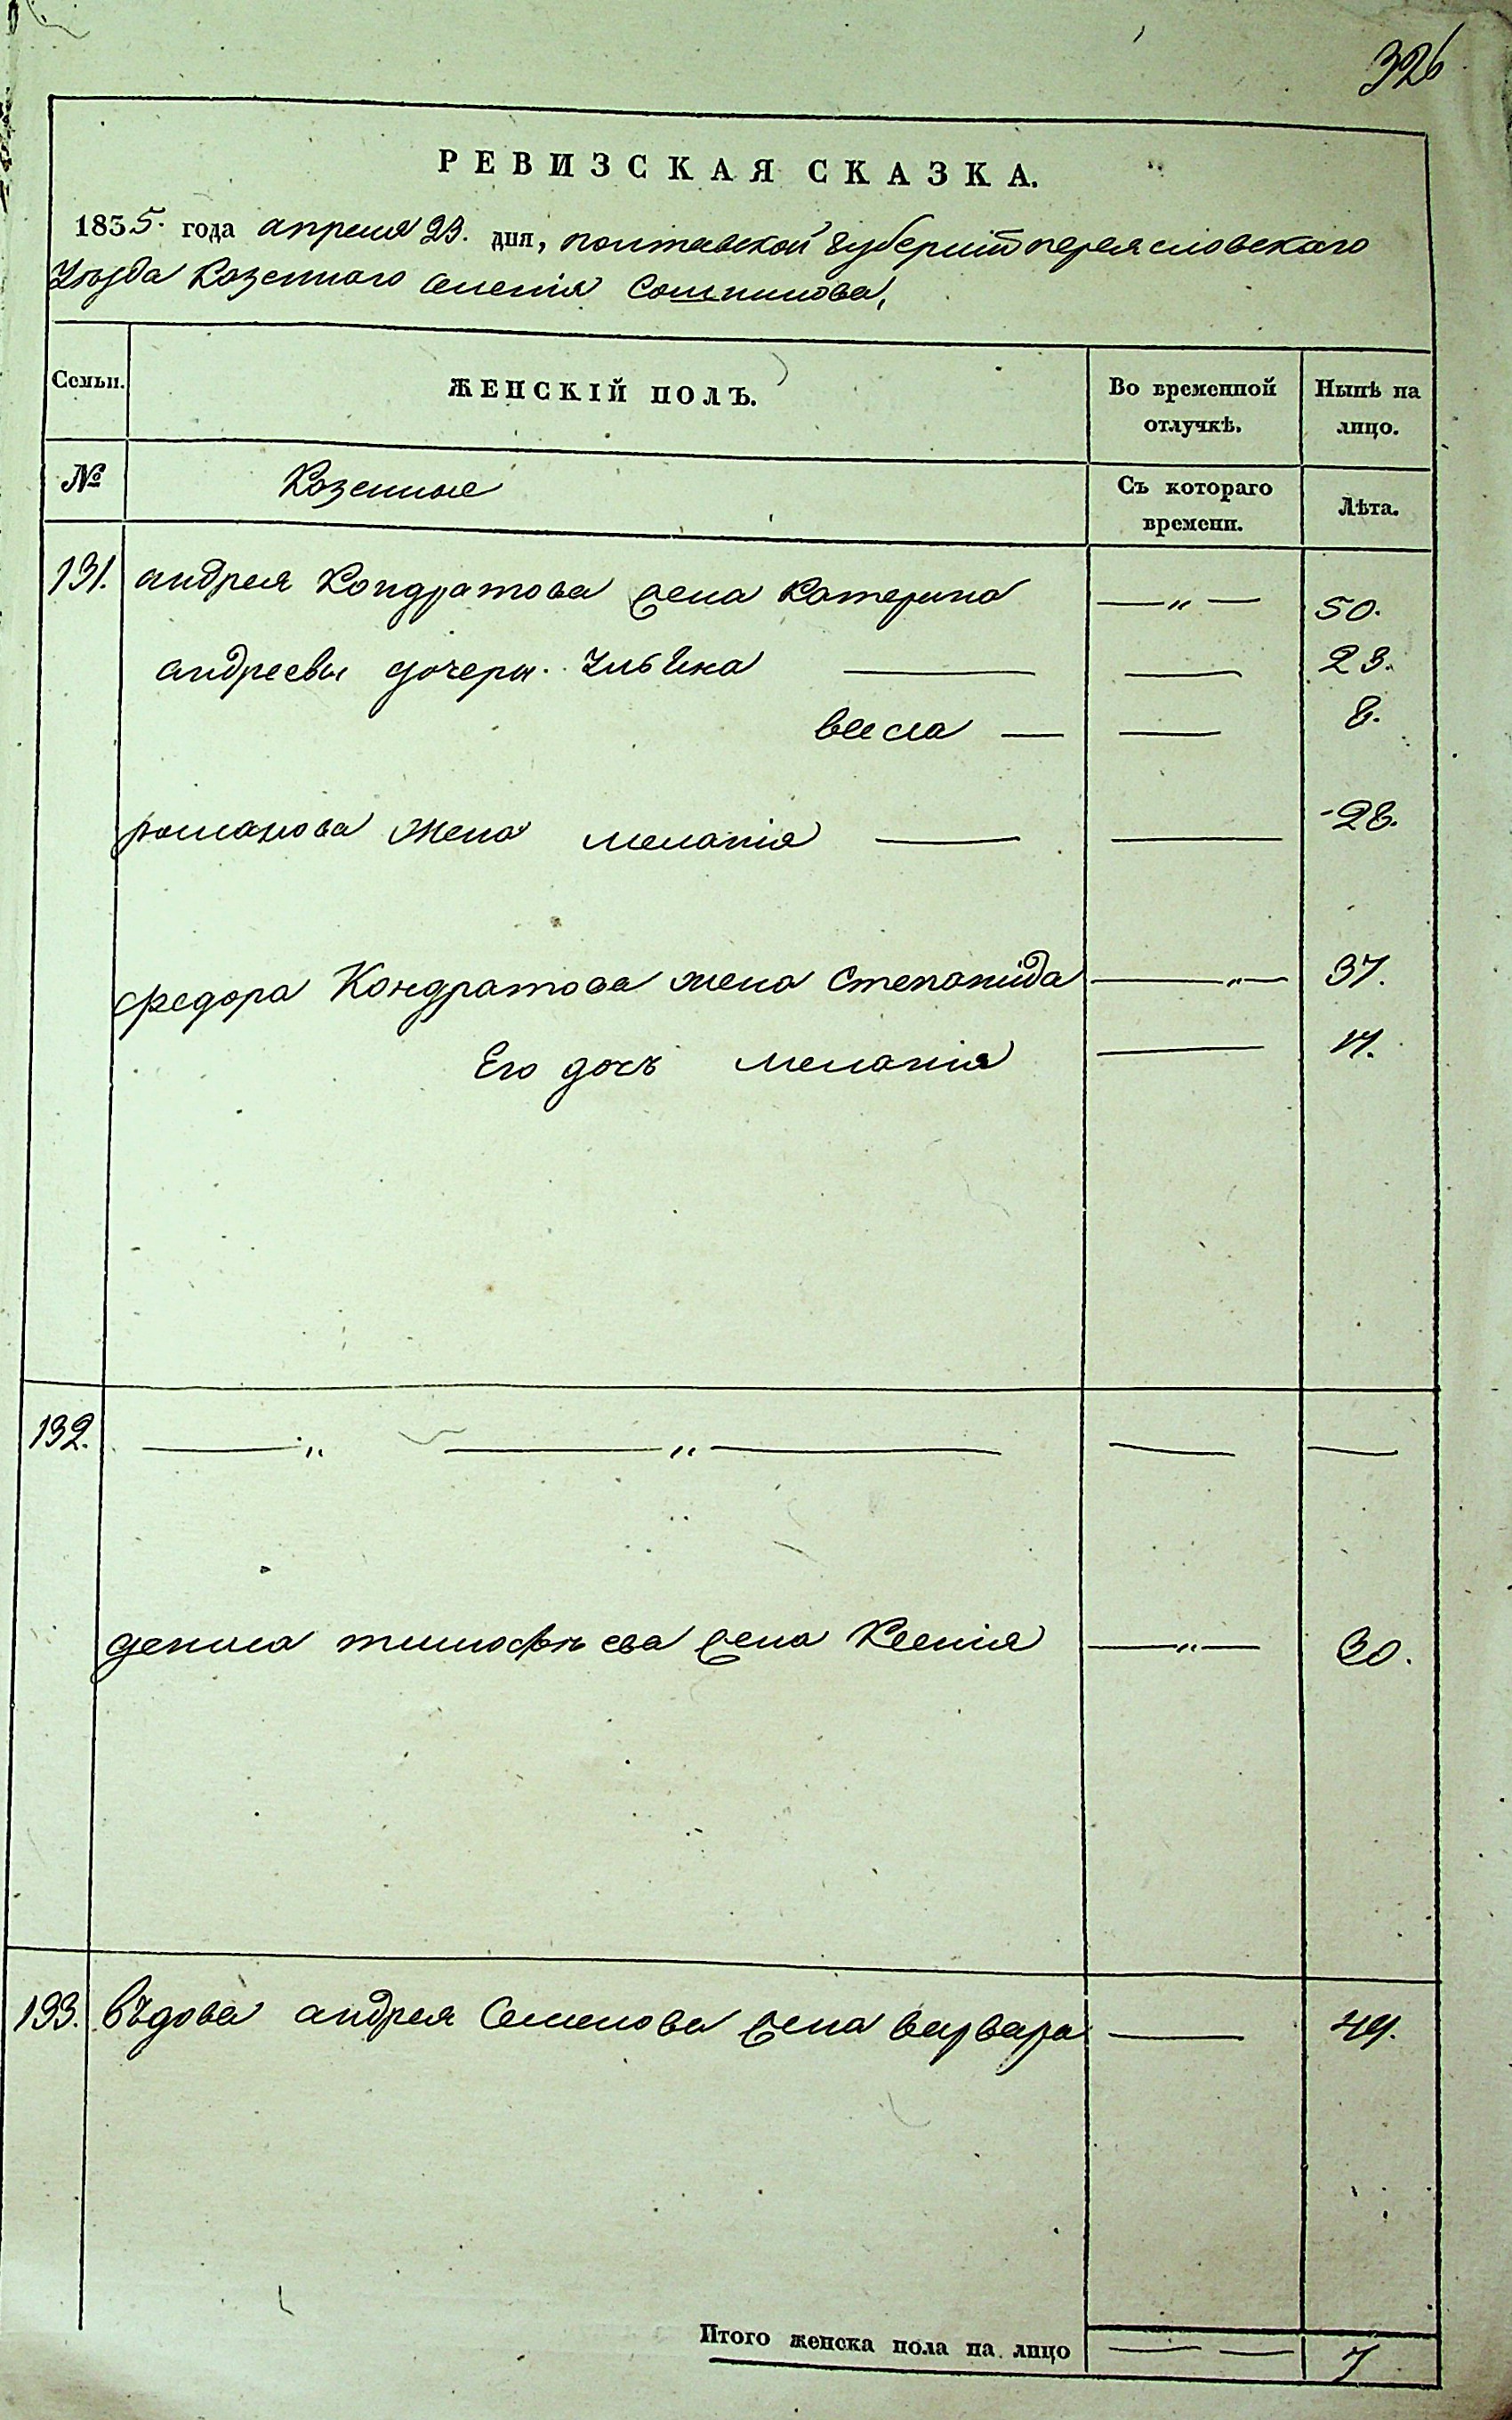 326
РЕВИЗСКАЯ СКАЗКА.
1835. года апреля 23. дня, полтавской губернии переясловского
Уѣзда Казенного селенія Сошникова,
Семьи. ЖЕНСКІЙ ПОЛЪ. Во временной отлучкѣ. Нынѣ на лицо.
№ Казенные Съ котораго времени. Лѣта.
131. андрея Кондратова жена катерина —„— 50.
андреевы дочеры. — — 23.
васса — — 8.
романова жена меланія — — 28.
федора Кондратова жена Степанида —„— 37.
Его дочь меланія — 17.
132. —„ —„— — —
дениса тимофѣева жена Ксенія —„— 30.
133. въдова андрея Семенова жена варвара — 44.
Итого женска пола на лицо — — 7